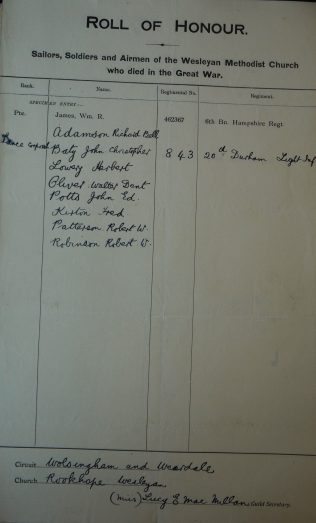 ROLL OF HONOUR.
Sailors, Soldiers and Airmen of the Wesleyan Methodist Church
who died in the Great War.
Rank. Name. Regimental No. Regiment.
SPECIMEN ENTRY:—
Pte. James, Wm. R. 462367 6th Bn. Hampshire Regt.
Adamson Richard Bell
Lance Corporal Baty John Christopher 843 20th Durham Light Inf
Lowery Herbert
Oliver Walter Dent
Potts John Ed.
Kirtin Fred
Patterson Robert W.
Robinson Robert W.
Circuit Wolsingham and Weardale
Church Rookhope Wesleyan
(Miss) Lucy E Mac Millan Guild Secretary.